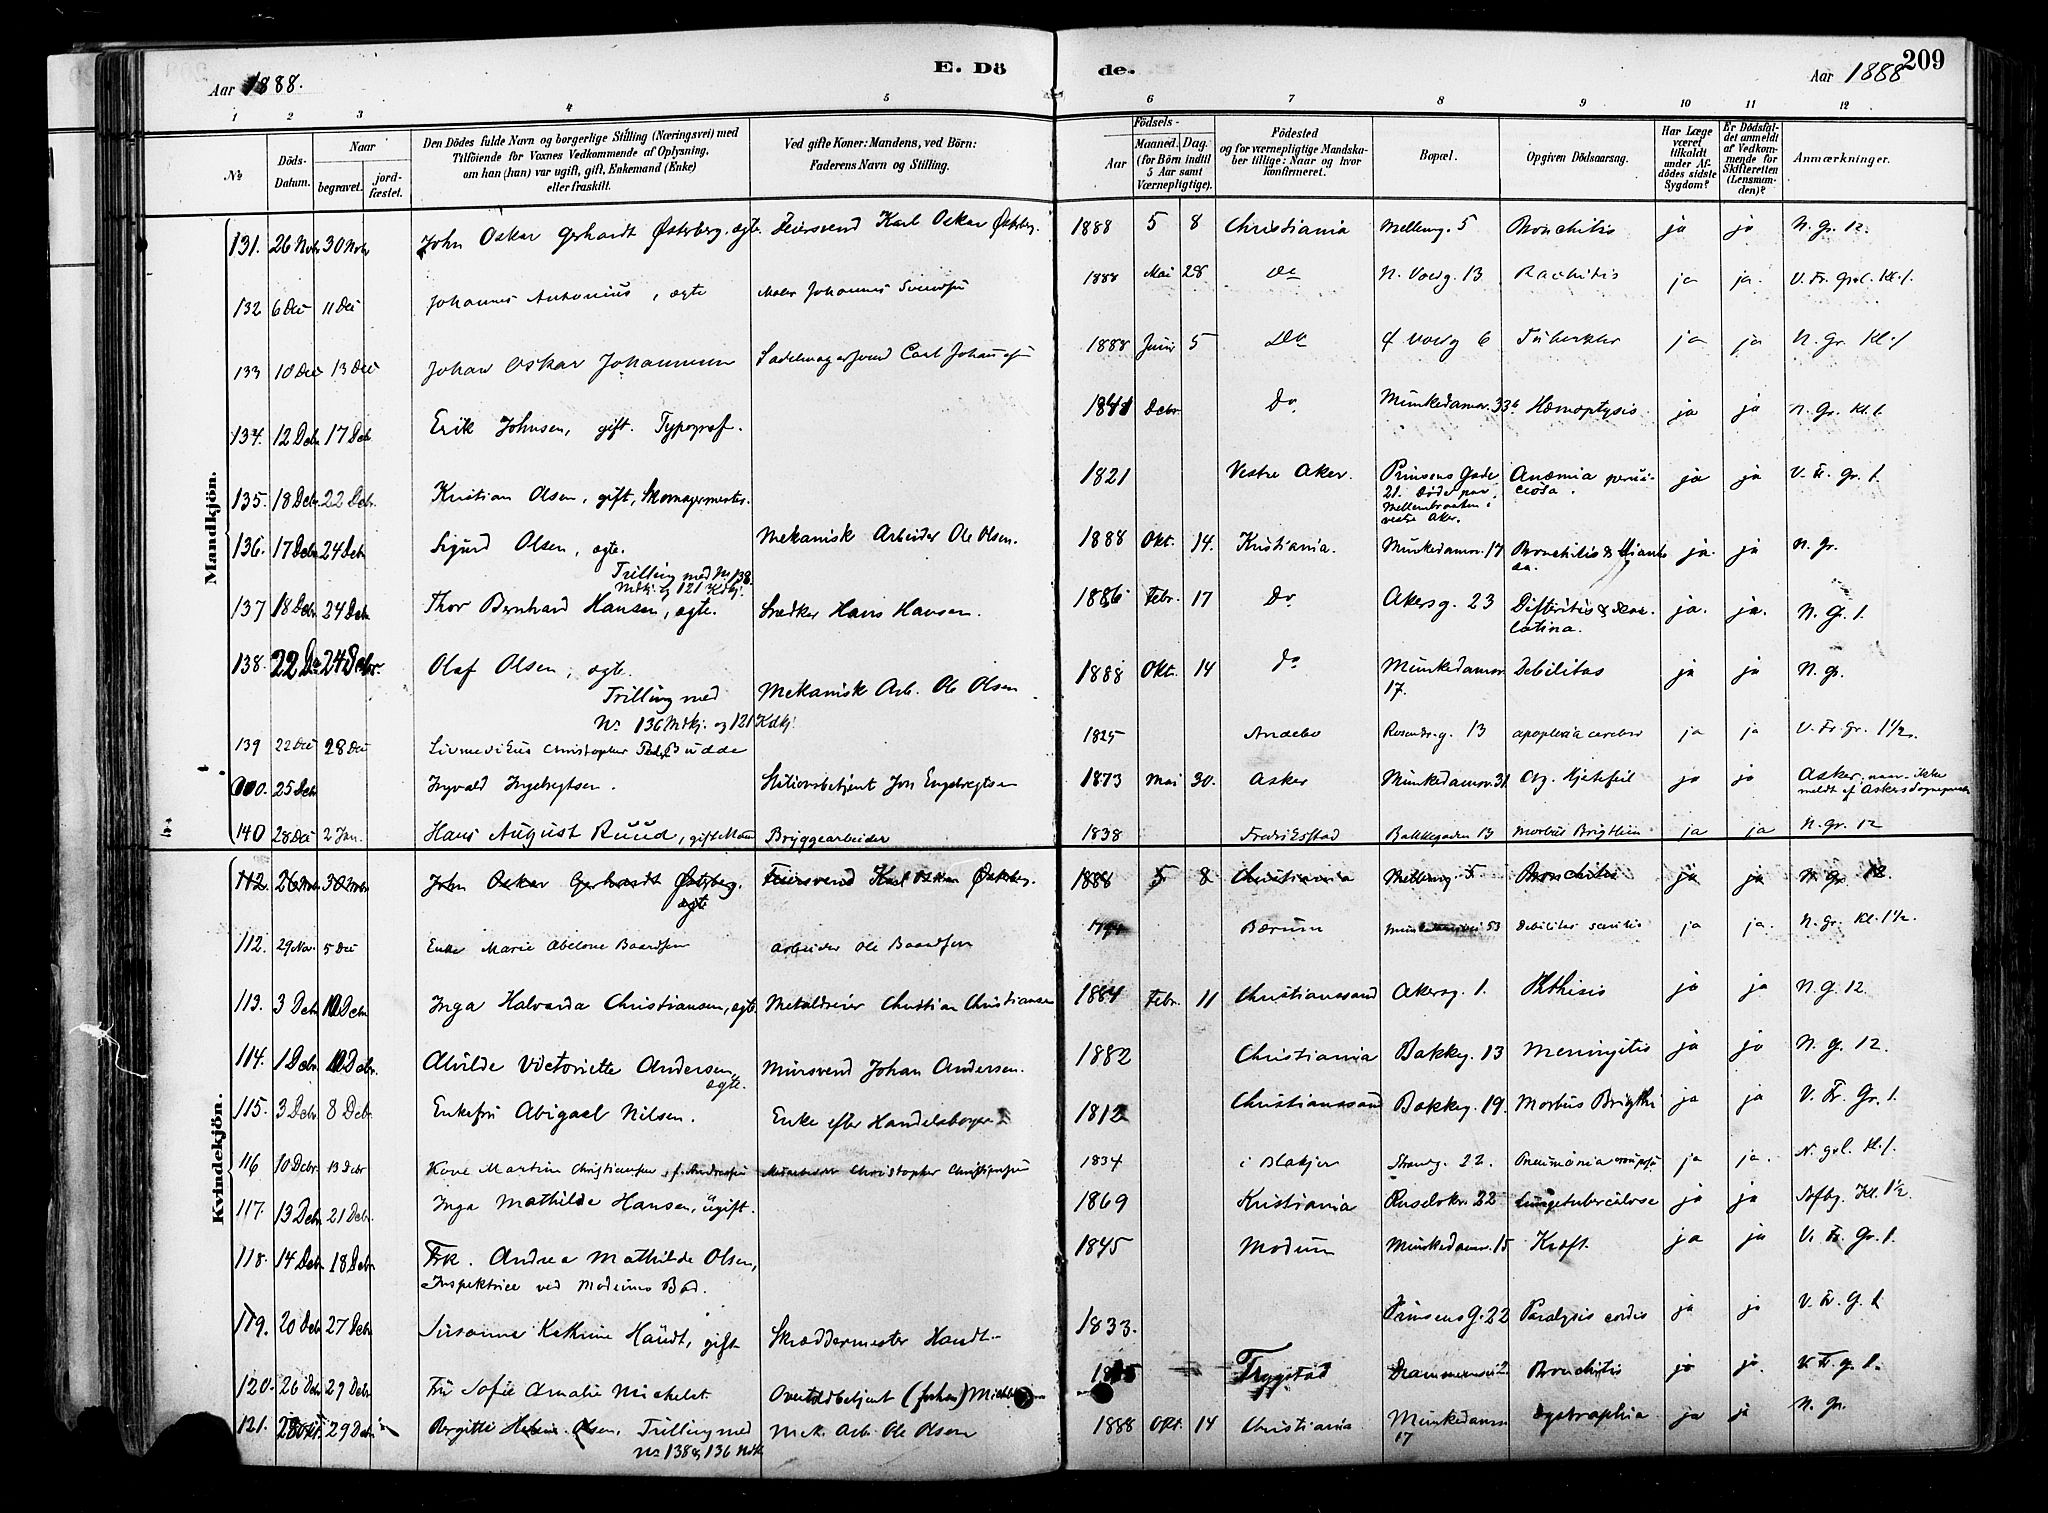 Aar 1888. E. Dö de. Aar 1888 209
1 2 3 4 5 6 7 8 9 10 11 12
No
Döds-Datum.
Naar begravet. jord-fæstet.
Den Dödes fulde Navn og borgerlige Stilling (Næringsvei) med
Tilföiende for Voxnes Vedkommende af Oplysning,
om han (hun) var ugift, gift, Enkemand (Enke)
eller fraskilt.
Ved gifte Koner: Mandens, ved Börn:
Faderens Navn og Stilling.
Födsels-
Aar Maaned. Dag.
(for Börn indtil
5 Aar samt
Værnepligtige).
Födested
og for værnepligtige Mandska-
ber tillige: Naar og hvor
konfirmeret.
Bopæl.
Opgiven Dödsaarsag.
Har Læge
været
tilkaldt
under Af-
dödes sidste
Sygdom?
Er Dödsfal-
det anmeldt
af Vedkom-
mende for
Skifteretten
(Lensman-
den)?
Anmærkninger.
Mandkjön.
131. 26 Nobr 30 Nobr John Oskar Gerhardt Østberg. ægte. Feiersvend Karl Oskar Østberg. 1888 5 8 Christiania Mellemg. 5 Bronchitis ja ja N. Gr. 12.
132 6 Dec 11 Dec Johannes Antonius, ægte Maler Johannes Svendsen 1888 Mai 28 Do N. Voldg. 13 Rachitis ja ja. V. Fr. Gvl. Kl. 1.
133 10 Dec 13 Dec Johan Oskar Johannesen Sadelmagersvend Carl Johansen 1888 Juni 5 Do Ø Voldg 6 Tuberkler ja ja N. Gr. Kl. 1
134. 12 Debr 17 Deb Erik Johnsen, gift. Typograf. 1841 Debr. Do Munkedamsv. 33b Hæmoptysis ja ja N. Gr. Kl. 1.
135. 18 Debr 22 Debr. Kristian Olsen, gift, Skomagermester. 1821 Vestre Aker. Prinsens Gade
21. døde paa
Mellembraaten i
vestre Aker. Anæmia perni-
ciosa. ja ja V. Fr. Gr. 1.
136. 17 Debr 24 Debr Sigurd Olsen, ægte.
Trilling med No 138
Mdkj. og 121 Kdkj. Mekanisk Arbeider Ole Olsen. 1888 Okt. 14. Kristiania. Munkedamsv. 17 Bronchitis & ja. ja N. Gr.
137 18 Debr 24 Debr Thor Bernhard Hansen, ægte. Snedker Hans Hansen. 1886 Febr. 17 Do Akersg. 23 Difteritis & Scar-
latina. ja. ja. N. G. 1.
138. 22 De 24 Debr. Olaf Olsen, ægte.
Trilling med
No 136 Mdkj. og 121 Kdkj. Mekanisk Arb. Ole Olsen 1888 Okt. 14 do Munkedamsv
17. Debilitas ja ja N. Gr.
139 22 Dec 28 Dec Christopher Budde 1825 Andebo Rosenkr.g. 13 apoplexia cerebri ja ja V. Fr. Gr. 1½.
25 Debr Ingvald Ingebregtsen. Stationsbetjent Jon Engebregtsen 1873 Mai 30. Asker Munkedamsv. 31. Org. Hjertefeil ja ja Asker, naar ikke
meldt af Askers Sognepræst
140 28 Dec 2 Jan. Hans August Ruud, gift Mand Bryggearbeider 1838 Fredriksstad Bakkegaden 13 Morbus Brigthii ja ja N. gr. 12
Kvindekjön.
112. 26 Nobr. 30 Nobr John Oskar Gerhardt Østberg.
ægte Feiersvend Karl Oskar Østberg. 1888 5 8 Christiania Mellemg. 5 Bronchitis ja ja N. Gr. 12.
112. 29 Nov. 5 Dec Enke Marie Abelone Baardsen Arbeider Ole Baardsen Bærum 53 Debilitas senilis ja ja. N. Gr. Kl. 1½.
113. 3 Debr 10 Debr Inga Halvarda Christiansen, ægte. Metaldreier Christian Christiansen 1884 Febr. 11 Christianssand Akersg. 1. Phthisis ja ja N. G. 12
114. 1 Debr 10 Debr. Alvilde Victoriette Andersen
ægte. Mursvend Johan Andersen. 1882 Christiania Bakkeg. 13 Meningitis ja ja N. G. 12.
115. 3 Debr 8 Debr Enkefru Abigael Nilsen. Enke efter Handelsborger 1812 Christianssand Bakkeg. 19. Morbus Brigthi ja ja V. Fr. Gr. 1.
116 10 Debr. 13 Debr Kone Martine Christiansen, f. Andreassen Christopher Christiansen 1834 i Blakjer Strandg. 22. Pneumonia crouposa ja ja. N. gvl. Kl. 1.
117. 13 Debr 21 Debr. Inga Mathilde Hansen, ugift. 1869 Kristiania Ruseløkv. 22 Lungetuberculose ja ja Nfbg. Kl. 1½.
118. 14 Debr 18 Debr Frk. Andrea Mathilde Olsen,
Inspektrice ved Modums Bad. 1845 Modum Munkedamsv. 15 Kræft. ja ja V. Fr. Gr. 1.
119. 20 Debr 27 Debr Susanne Kathrine Haüdt, gift Skræddermester Haudt. 1833. Prinsens G. 22 Paralysis cordis ja ja V. Fr. G. 1
120. 26 Debr 29 Debr Fru Sofie Amalie Michelet Overtoldbetjent Trygstad Bronchitis ja ja. V. Fr. g. 1.
121. 29 Debr Birgitte Olsen, Trilling med
No 138 & 136 Mdk Mek. Arb. Ole Olsen 1888 Okt. 14 Christiania Munkedamsv
17 Dystraphia ja ja N. Gr.